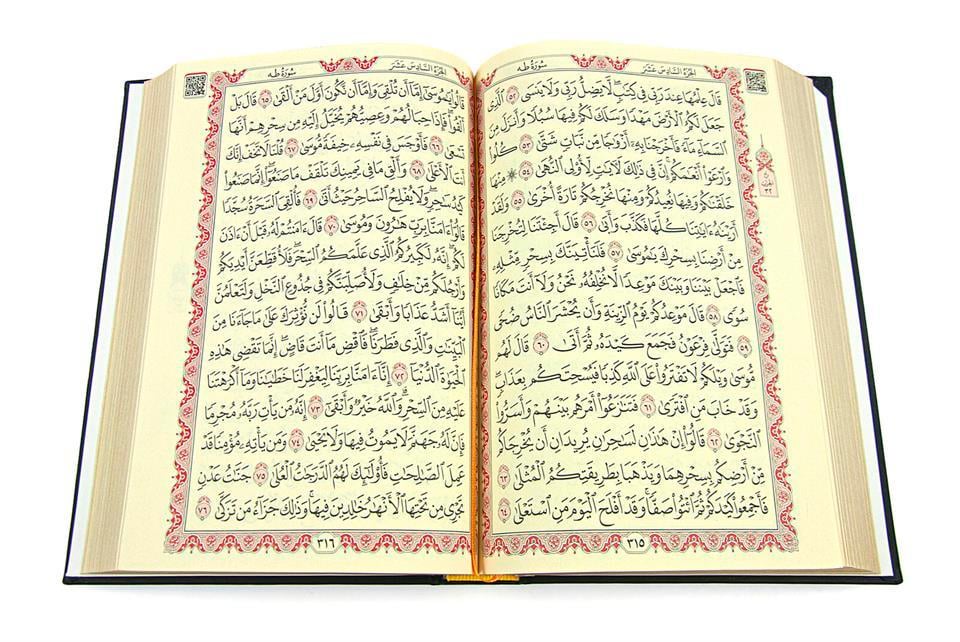 الجُزْءُ السَّادِسَ عَشَرَ سُورَةُ طه
قَالَ عِلْمُهَا عِندَ رَبِّى فِى كِتَٰبٍۖ لَّا يَضِلُّ رَبِّى وَلَا يَنسَى ٥٢ ٱلَّذِى
جَعَلَ لَكُمُ ٱلْأَرْضَ مَهْدًا وَسَلَكَ لَكُمْ فِيهَا سُبُلًا وَأَنزَلَ مِنَ
ٱلسَّمَآءِ مَآءً فَأَخْرَجْنَا بِهِۦٓ أَزْوَٰجًا مِّن نَّبَاتٍ شَتَّىٰ ٥٣ كُلُوا۟
وَٱرْعَوْا۟ أَنْعَٰمَكُمْۗ إِنَّ فِى ذَٰلِكَ لَـَٔايَٰتٍ لِّأُو۟لِى ٱلنُّهَىٰ ٥٤ ۞ مِنْهَا
خَلَقْنَٰكُمْ وَفِيهَا نُعِيدُكُمْ وَمِنْهَا نُخْرِجُكُمْ تَارَةً أُخْرَىٰ ٥٥ وَلَقَدْ
أَرَيْنَٰهُ ءَايَٰتِنَا كُلَّهَا فَكَذَّبَ وَأَبَىٰ ٥٦ قَالَ أَجِئْتَنَا لِتُخْرِجَنَا
مِنْ أَرْضِنَا بِسِحْرِكَ يَٰمُوسَىٰ ٥٧ فَلَنَأْتِيَنَّكَ بِسِحْرٍ مِّثْلِهِۦ
فَٱجْعَلْ بَيْنَنَا وَبَيْنَكَ مَوْعِدًا لَّا نُخْلِفُهُۥ نَحْنُ وَلَآ أَنتَ مَكَانًا
سُوًى ٥٨ قَالَ مَوْعِدُكُمْ يَوْمُ ٱلزِّينَةِ وَأَن يُحْشَرَ ٱلنَّاسُ ضُحًى
٥٩ فَتَوَلَّىٰ فِرْعَوْنُ فَجَمَعَ كَيْدَهُۥ ثُمَّ أَتَىٰ ٦٠ قَالَ لَهُم
مُّوسَىٰ وَيْلَكُمْ لَا تَفْتَرُوا۟ عَلَى ٱللَّهِ كَذِبًا فَيُسْحِتَكُم بِعَذَابٍۖ
وَقَدْ خَابَ مَنِ ٱفْتَرَىٰ ٦١ فَتَنَٰزَعُوٓا۟ أَمْرَهُم بَيْنَهُمْ وَأَسَرُّوا۟
ٱلنَّجْوَىٰ ٦٢ قَالُوٓا۟ إِنْ هَٰذَٰنِ لَسَٰحِرَٰنِ يُرِيدَانِ أَن يُخْرِجَاكُم
مِّنْ أَرْضِكُم بِسِحْرِهِمَا وَيَذْهَبَا بِطَرِيقَتِكُمُ ٱلْمُثْلَىٰ ٦٣
فَأَجْمِعُوا۟ كَيْدَكُمْ ثُمَّ ٱئْتُوا۟ صَفًّاۚ وَقَدْ أَفْلَحَ ٱلْيَوْمَ مَنِ ٱسْتَعْلَىٰ ٦٤
٣١٥
الجُزْءُ السَّادِسَ عَشَرَ سُورَةُ طه
قَالُوا۟ يَٰمُوسَىٰٓ إِمَّآ أَن تُلْقِىَ وَإِمَّآ أَن نَّكُونَ أَوَّلَ مَنْ أَلْقَىٰ ٦٥ قَالَ بَلْ
أَلْقُوا۟ۖ فَإِذَا حِبَالُهُمْ وَعِصِيُّهُمْ يُخَيَّلُ إِلَيْهِ مِن سِحْرِهِمْ أَنَّهَا
تَسْعَىٰ ٦٦ فَأَوْجَسَ فِى نَفْسِهِۦ خِيفَةً مُّوسَىٰ ٦٧ قُلْنَا لَا تَخَفْ إِنَّكَ
أَنتَ ٱلْأَعْلَىٰ ٦٨ وَأَلْقِ مَا فِى يَمِينِكَ تَلْقَفْ مَا صَنَعُوٓا۟ۖ إِنَّمَا صَنَعُوا۟
كَيْدُ سَٰحِرٍۖ وَلَا يُفْلِحُ ٱلسَّاحِرُ حَيْثُ أَتَىٰ ٦٩ فَأُلْقِىَ ٱلسَّحَرَةُ سُجَّدًا
قَالُوٓا۟ ءَامَنَّا بِرَبِّ هَٰرُونَ وَمُوسَىٰ ٧٠ قَالَ ءَامَنتُمْ لَهُۥ قَبْلَ أَنْ ءَاذَنَ
لَكُمْۖ إِنَّهُۥ لَكَبِيرُكُمُ ٱلَّذِى عَلَّمَكُمُ ٱلسِّحْرَۖ فَلَأُقَطِّعَنَّ أَيْدِيَكُمْ
وَأَرْجُلَكُم مِّنْ خِلَٰفٍ وَلَأُصَلِّبَنَّكُمْ فِى جُذُوعِ ٱلنَّخْلِ وَلَتَعْلَمُنَّ
أَيُّنَآ أَشَدُّ عَذَابًا وَأَبْقَىٰ ٧١ قَالُوا۟ لَن نُّؤْثِرَكَ عَلَىٰ مَا جَآءَنَا مِنَ
ٱلْبَيِّنَٰتِ وَٱلَّذِى فَطَرَنَاۖ فَٱقْضِ مَآ أَنتَ قَاضٍۖ إِنَّمَا تَقْضِى هَٰذِهِ
ٱلْحَيَوٰةَ ٱلدُّنْيَآ ٧٢ إِنَّآ ءَامَنَّا بِرَبِّنَا لِيَغْفِرَ لَنَا خَطَٰيَٰنَا وَمَآ أَكْرَهْتَنَا
عَلَيْهِ مِنَ ٱلسِّحْرِۗ وَٱللَّهُ خَيْرٌ وَأَبْقَىٰٓ ٧٣ إِنَّهُۥ مَن يَأْتِ رَبَّهُۥ مُجْرِمًا
فَإِنَّ لَهُۥ جَهَنَّمَ لَا يَمُوتُ فِيهَا وَلَا يَحْيَىٰ ٧٤ وَمَن يَأْتِهِۦ مُؤْمِنًا قَدْ
عَمِلَ ٱلصَّٰلِحَٰتِ فَأُو۟لَٰٓئِكَ لَهُمُ ٱلدَّرَجَٰتُ ٱلْعُلَىٰ ٧٥ جَنَّٰتُ عَدْنٍ
تَجْرِى مِن تَحْتِهَا ٱلْأَنْهَٰرُ خَٰلِدِينَ فِيهَاۚ وَذَٰلِكَ جَزَآءُ مَن تَزَكَّىٰ ٧٦
٣١٦